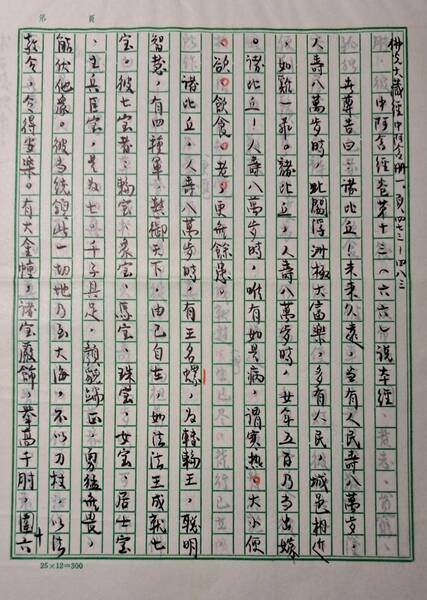 第　頁
佛光大藏經中阿含冊一，頁四七三～四八三
中阿含經卷第十三（六六）說本經
世尊告曰：諸比丘！未來久遠，當有人民壽八萬歲，
人壽八萬歲時，此閻浮洲極大富樂，多有人民，城邑相近
，如雞一飛。諸比丘，人壽八萬歲時，女年五百乃當出嫁
。諸比丘！人壽八萬歲時，唯有如是病，謂寒熱。大小便
。欲。飲食。老，更無餘患。
諸比丘，人壽八萬歲時，有王名螺，為轉輪王，聰明
智慧，有四種軍，整御天下，由己自在，如法法王成就七
寶。彼七寶者，輪寶、象寶、馬寶、珠寶、女寶、居士寶
、主兵臣寶，是為七。千子具足，顏貌端正，勇猛無畏，
能伏他眾。彼當統領此一切地乃至大海，不以刀杖，以法
教令，令得安樂。有大金幢，諸寶嚴飾，舉高千肘，圍六
25×12=300